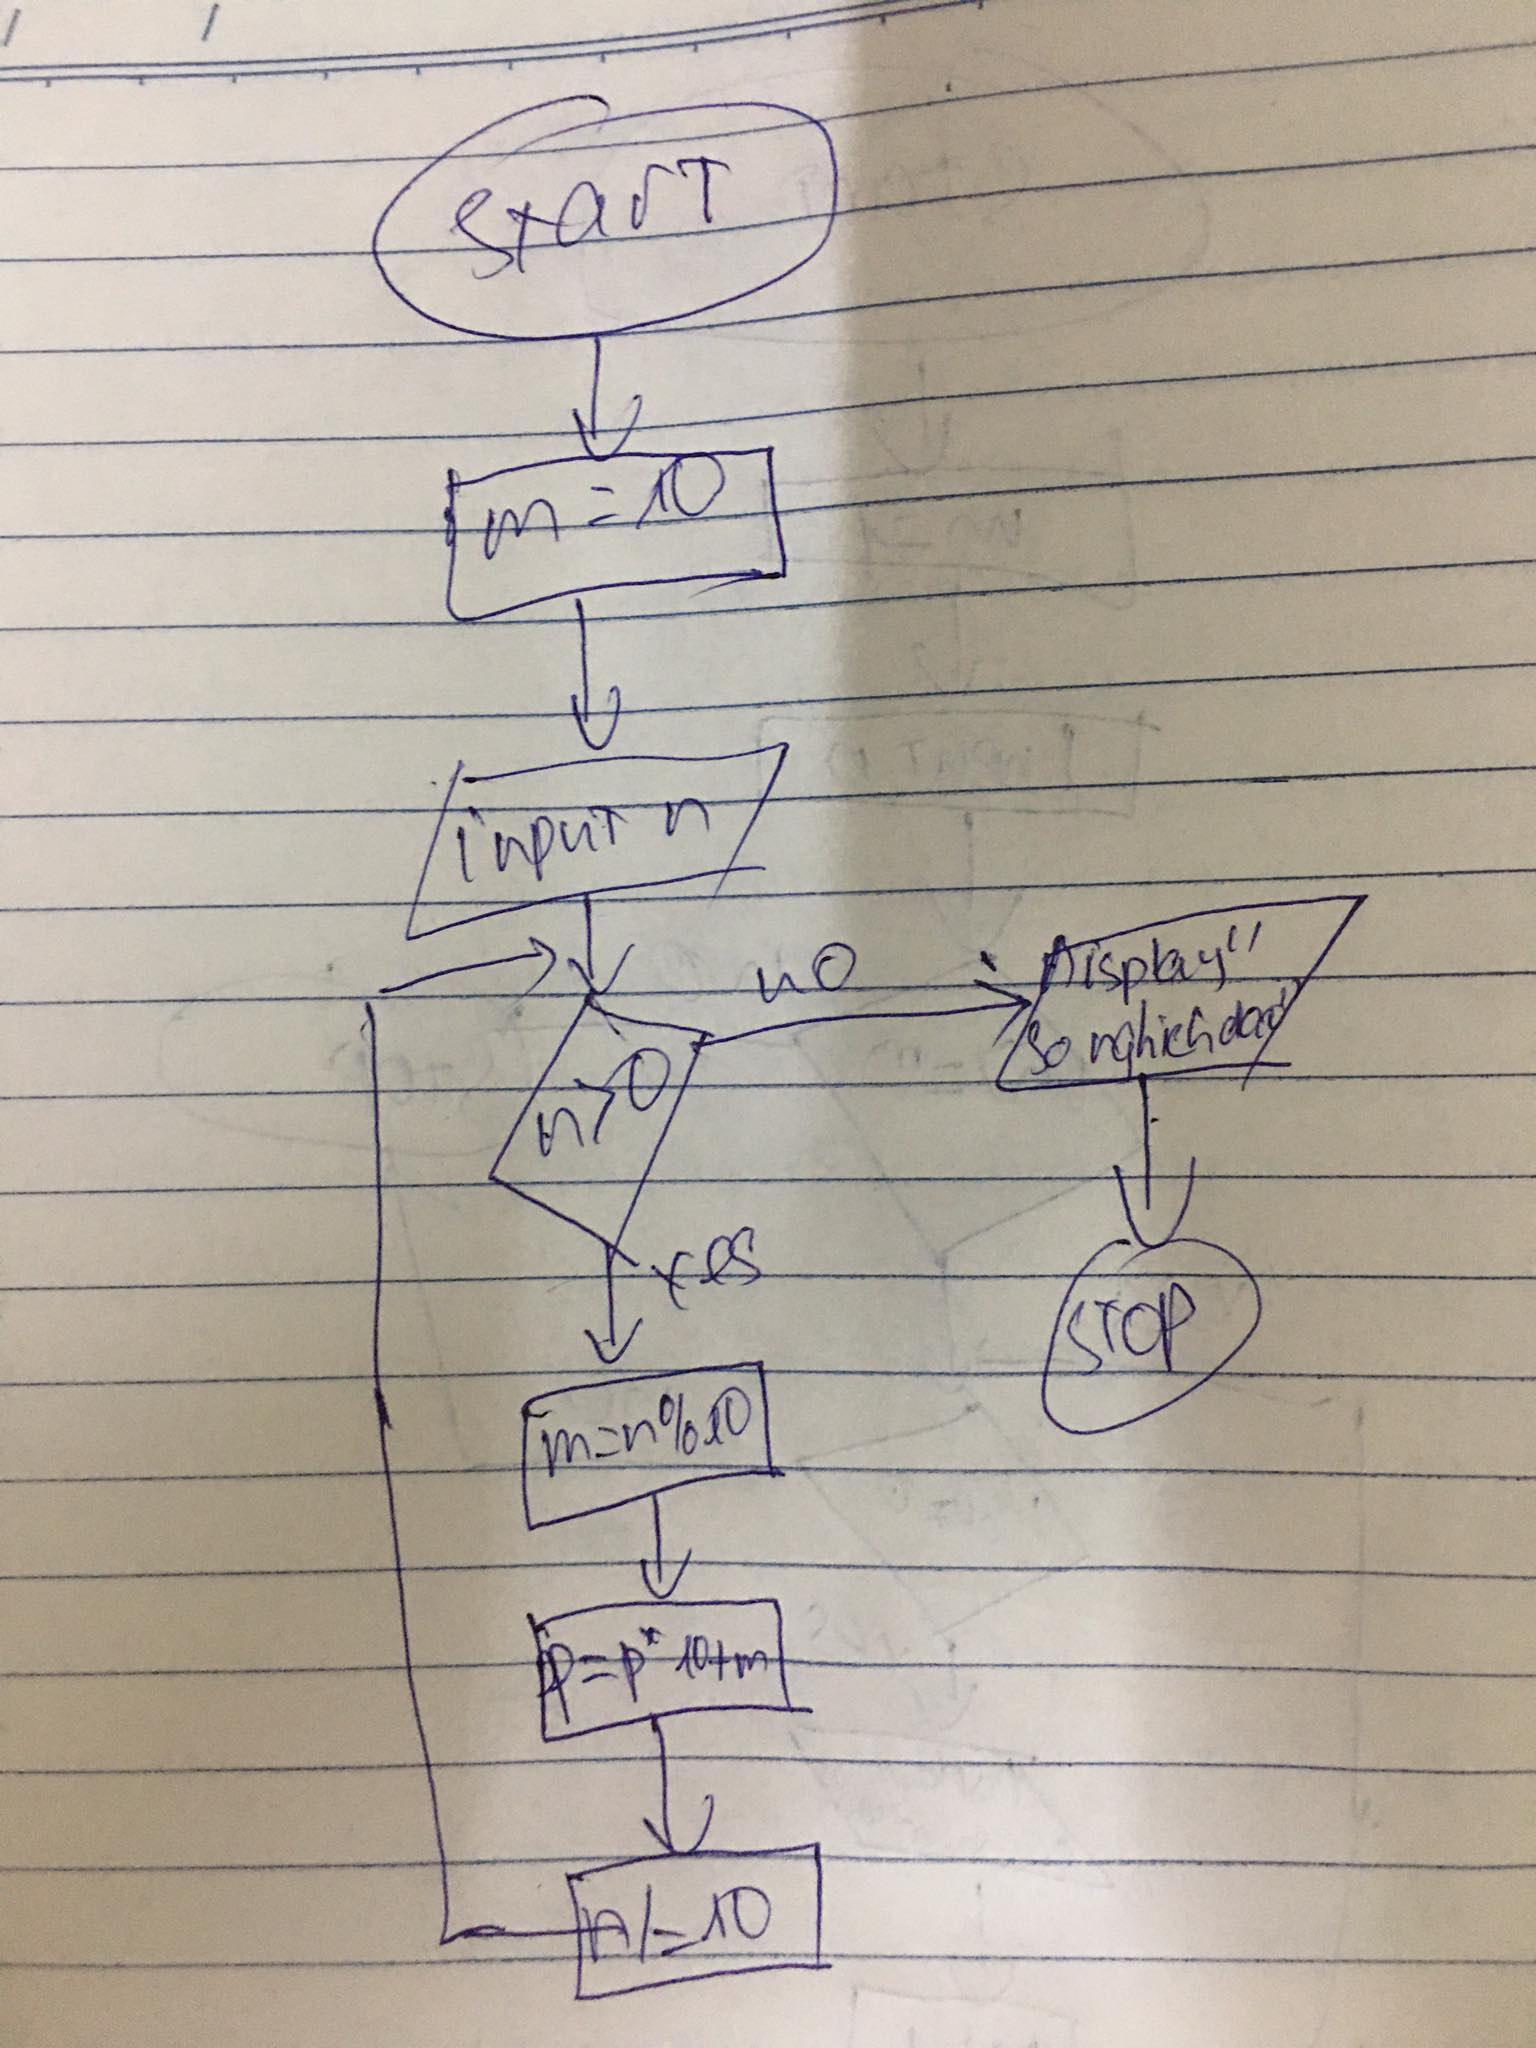 START
m = 10
input n
no
Display "
so nghich dao"
n>0
yes
STOP
m=n%10
p=p*10+m
n/=10